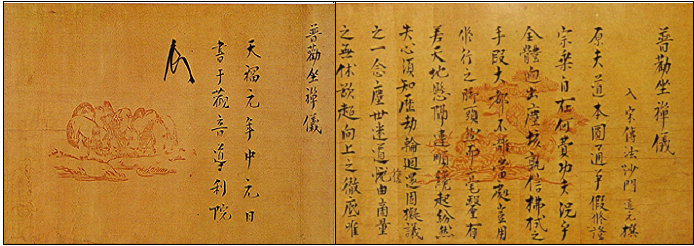 普勸坐禪儀
入宋傳法沙門道元撰
原夫道本圓通爭假修證
宗乘自在何費功夫況乎
全體迥出塵埃孰信拂拭之
手段大都不離當處豈用
修行之脚頭然而毫釐有
差天地懸隔違順纔起紛然
失心須知歷劫輪迴還因擬議
之一念塵世迷道復由商量
之無休欲超向上之徹底唯
普勸坐禪儀
天福元年中元日
書于觀音導利院